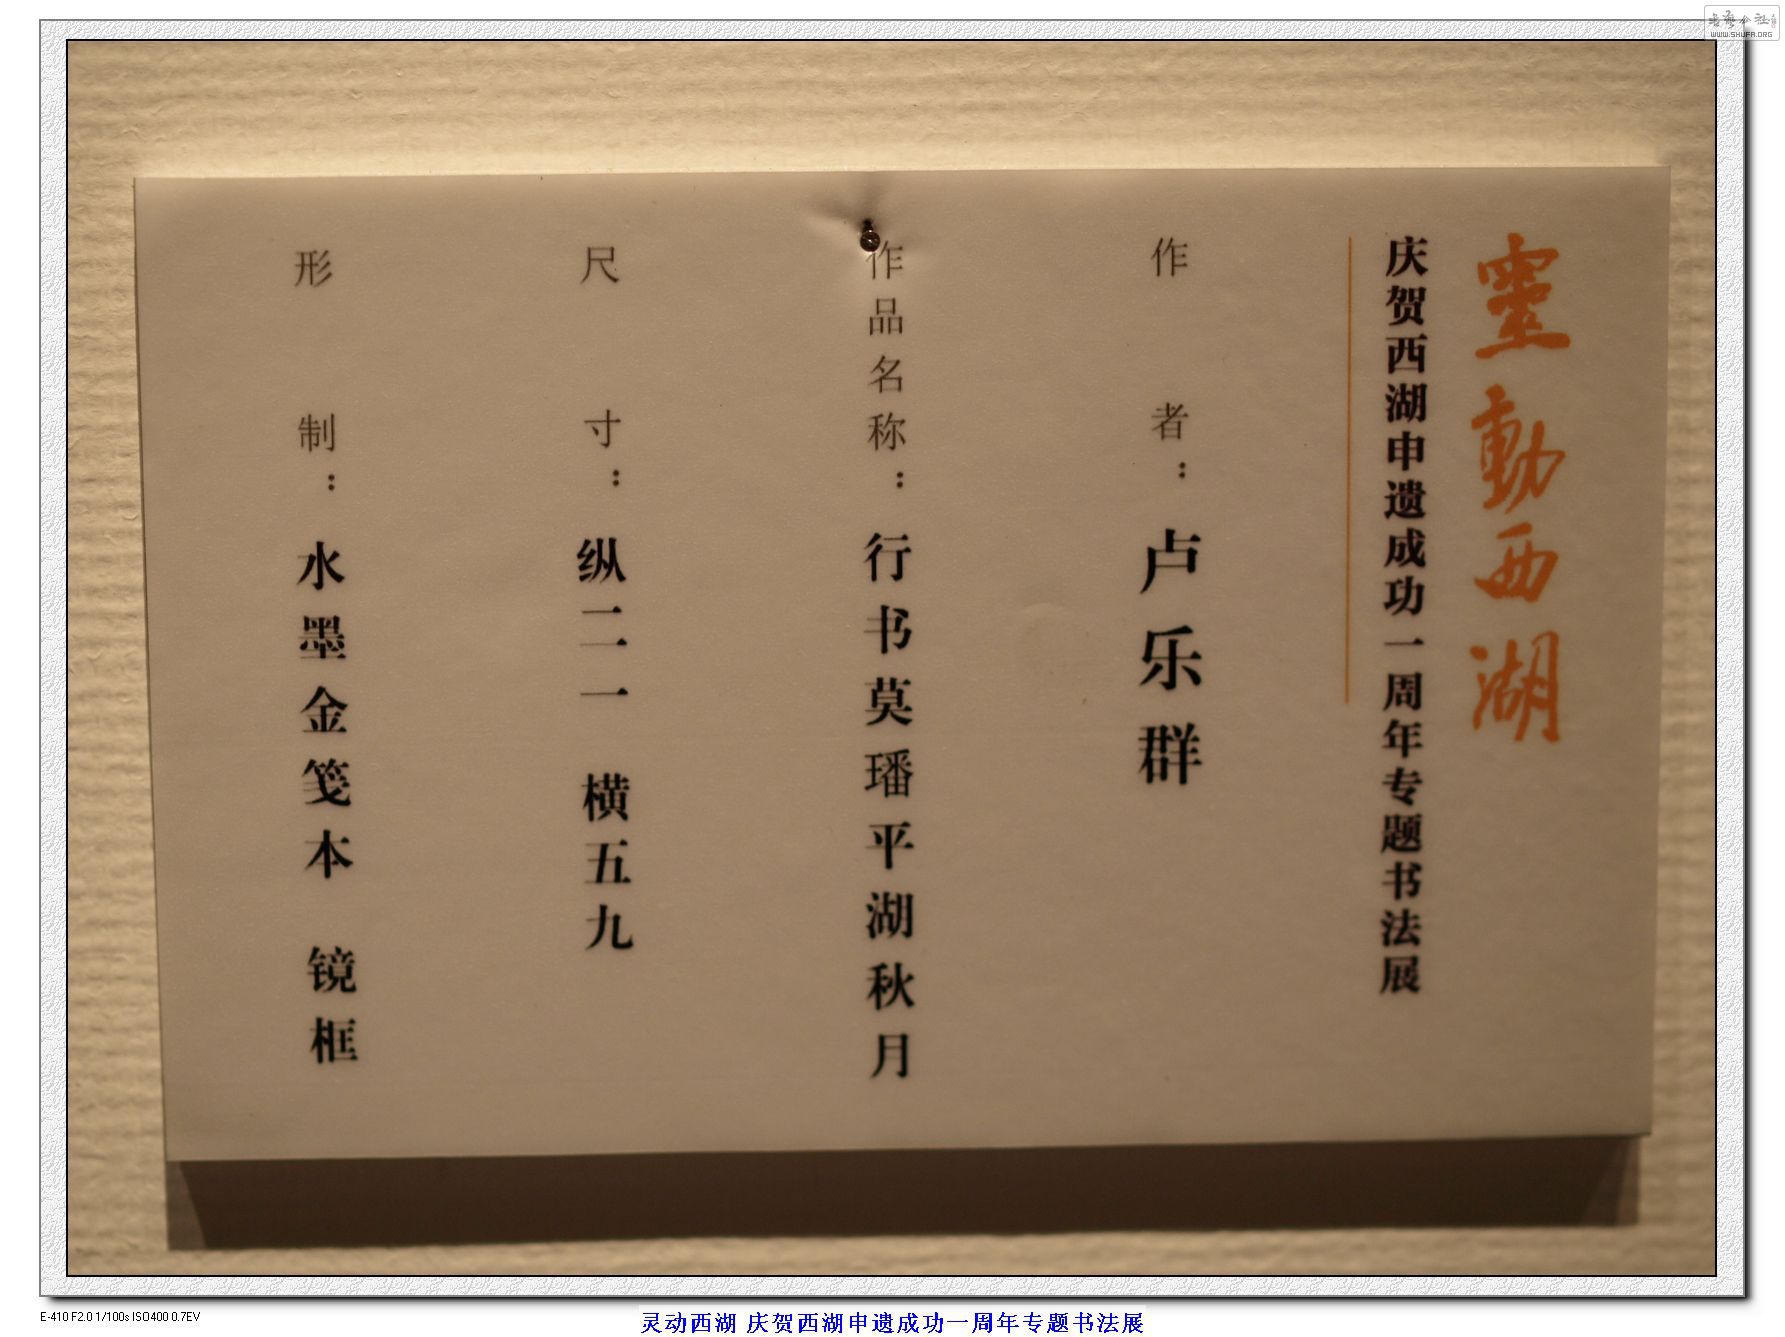 靈動西湖
庆贺西湖申遗成功一周年专题书法展
作者：卢乐群
作品名称：行书莫璠平湖秋月
尺寸：纵二二一 横五九
形制：水墨金笺本 镜框
WWW.SHUFA.ORG
E-410 F2.0 1/100s ISO400 0.7EV
灵动西湖 庆贺西湖申遗成功一周年专题书法展